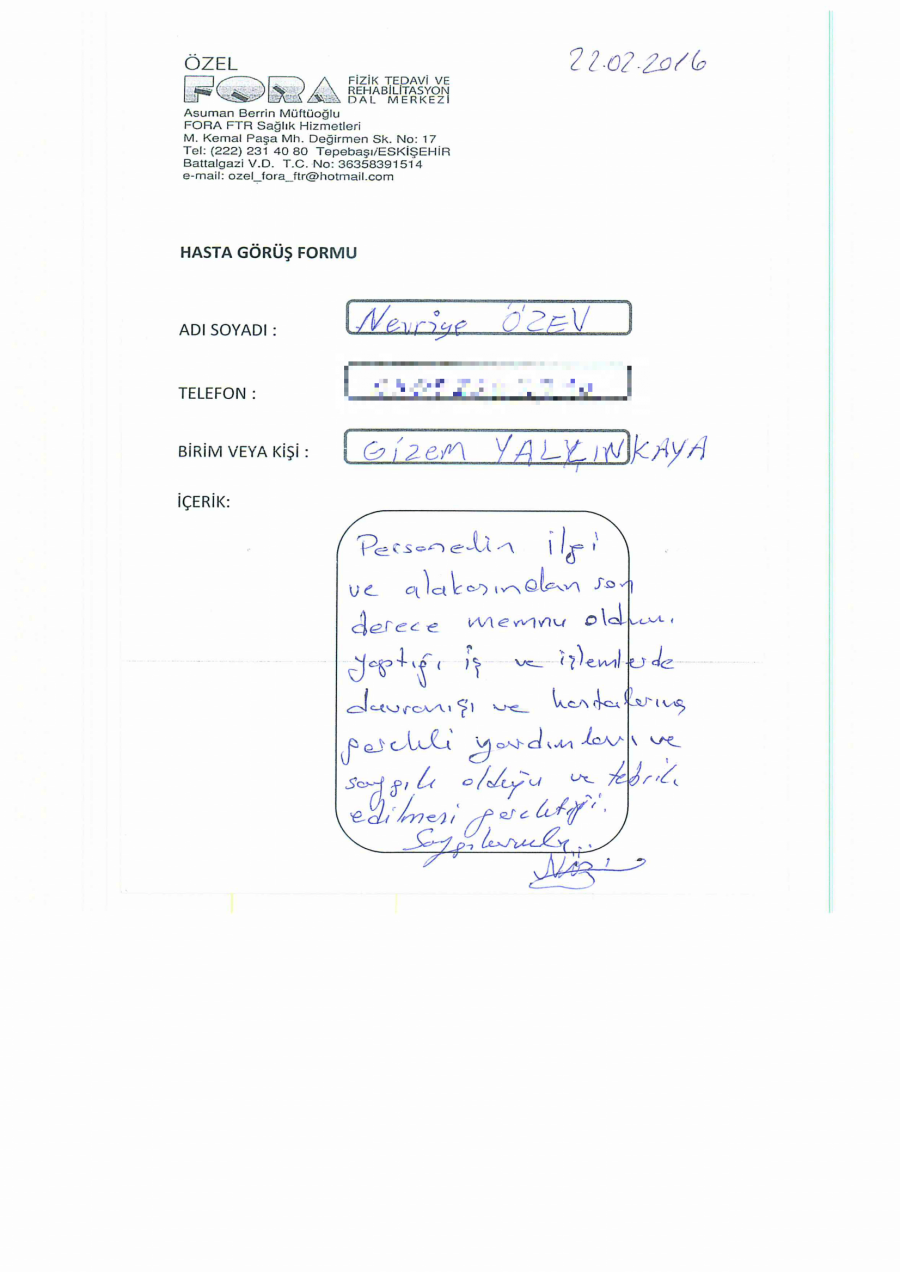 22.02.2016
ÖZEL
FORA FİZİK TEDAVİ VE
REHABİLİTASYON
DAL MERKEZİ
Asuman Berrin Müftüoğlu
FORA FTR Sağlık Hizmetleri
M. Kemal Paşa Mh. Değirmen Sk. No: 17
Tel: (222) 231 40 80 Tepebaşı/ESKİŞEHİR
Battalgazi V.D. T.C. No: 36358391514
e-mail: ozel_fora_ftr@hotmail.com
HASTA GÖRÜŞ FORMU
ADI SOYADI : Nevriye ÖZEV
TELEFON :
BİRİM VEYA KİŞİ : Gizem YALÇINKAYA
İÇERİK:
Personelin ilgi
ve alakasından son
derece memnu oldum.
yaptığı iş ve işlemlerde
davranışı ve hastalarına
gerekli yardımları ve
saygılı olduğu ve tebrik
edilmesi gerektiği.
Saygılarımla..